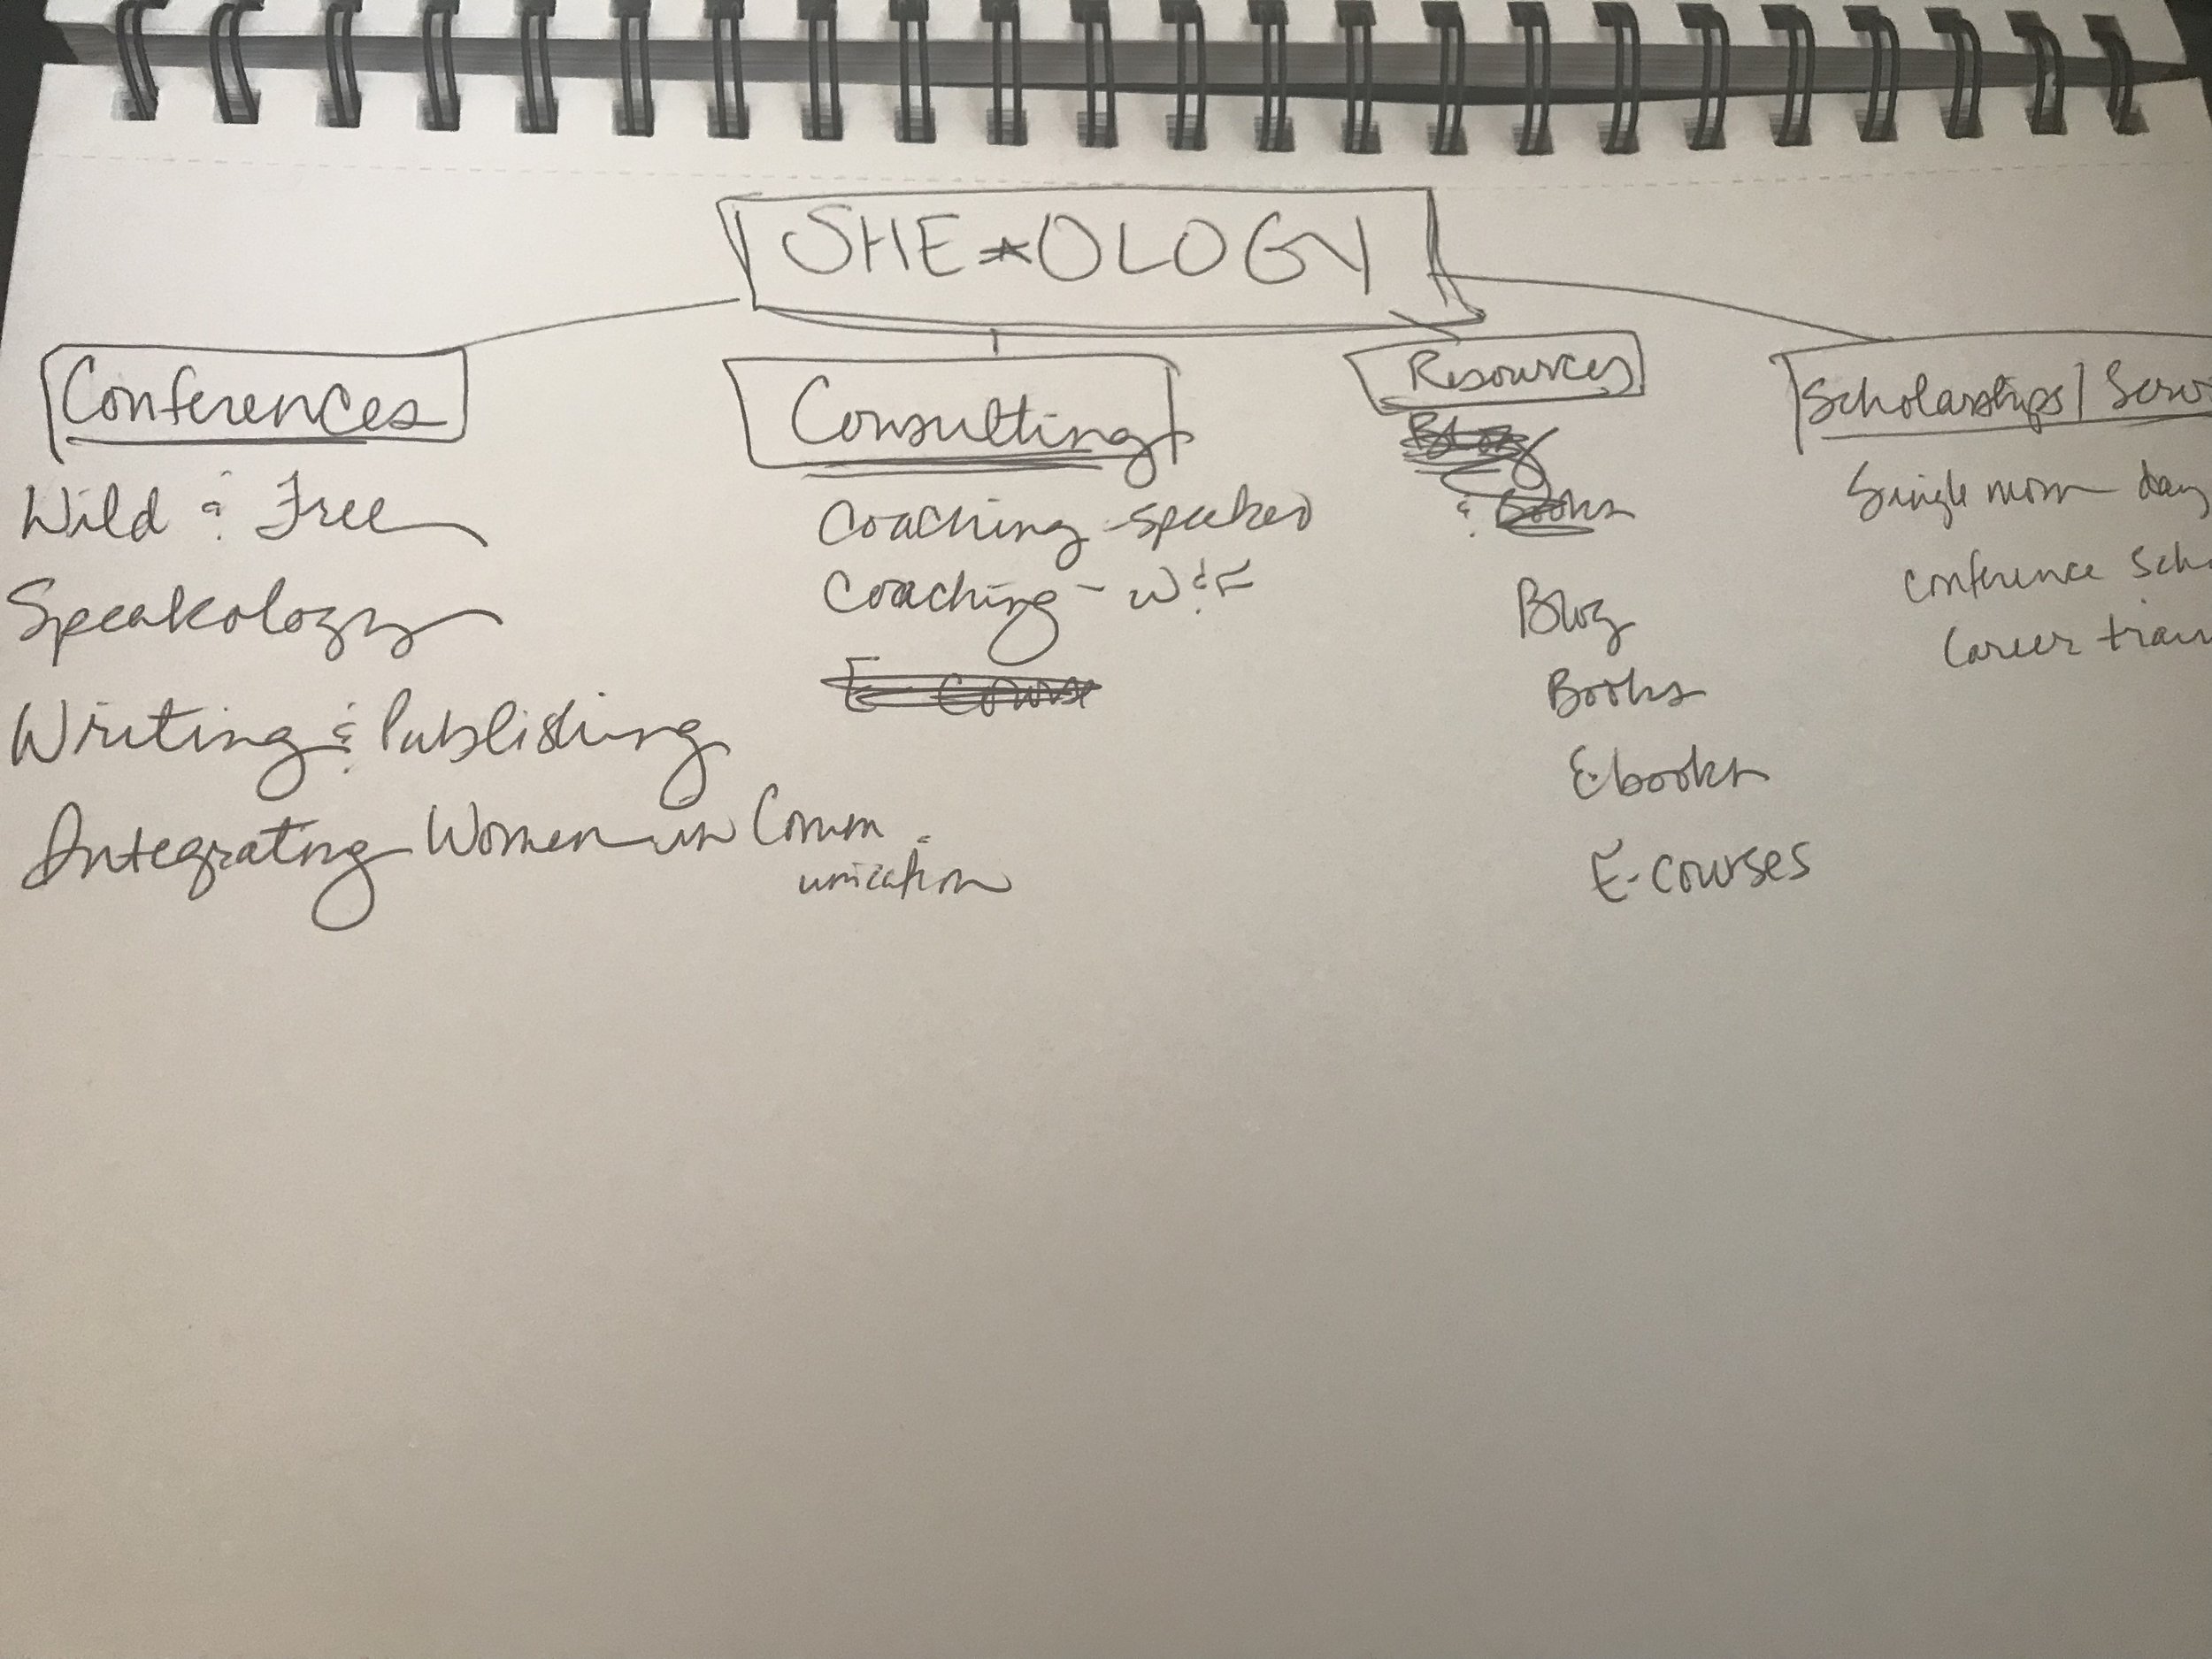 SHE★OLOGY
Conferences
Wild & Free
Speakology
Writing & Publishing
Integrating Women in Comm
unication
Consulting
Coaching - speaker
Coaching - W&F
E-Course
Resources
Blog
& Books
Blog
Books
Ebooks
E-courses
Scholarships/
Single mom day
Conference
Career